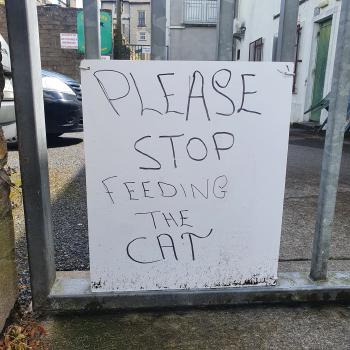 PLEASE
STOP
FEEDING
THE
CAT